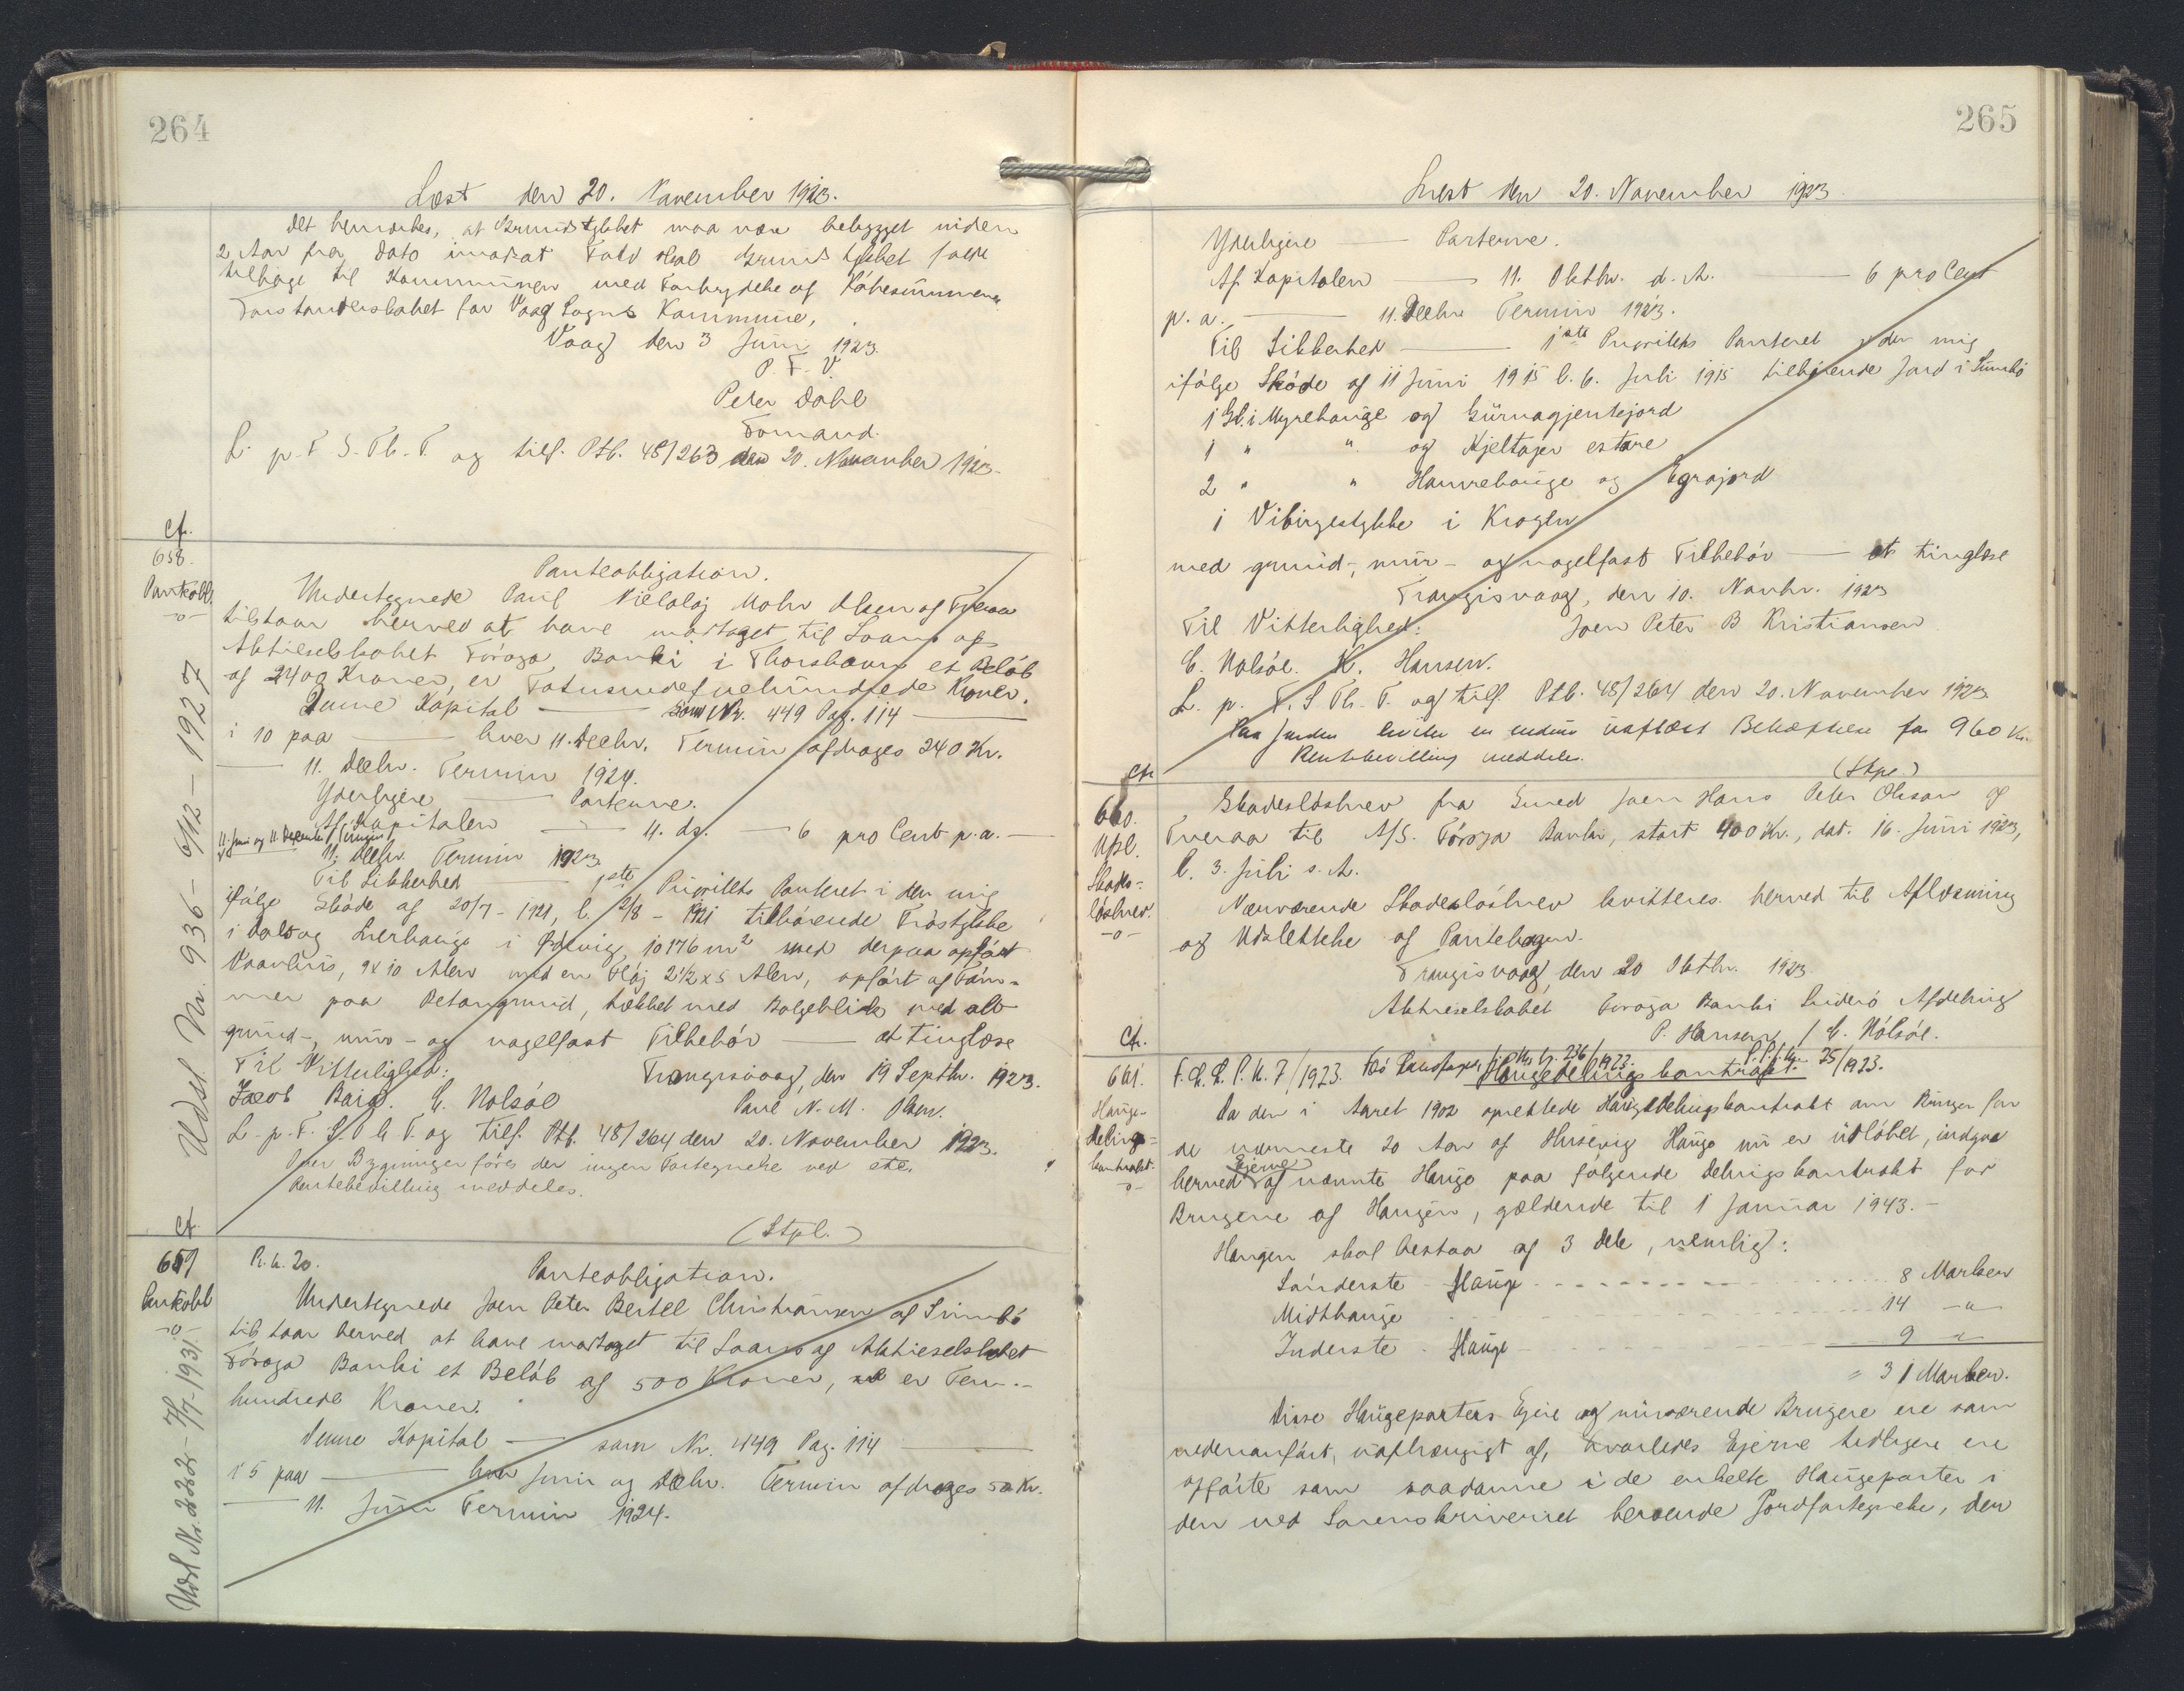 264
Læst den 20. November 1923.
Det bemærkes, at Grundstykket maa være bebygget inden
2 Aar fra Dato imodsat Fald skal Grundstykket falde
tilbage til Kommunen med Fortrydelse af Købesummen
Forstanderskabet for Vaag Sogns Kommune,
Vaag den 3 Juni 1923.
P. F. V.
Peter Dahl
Formand.
L. p. F. S. Th. T. og tilf. Ptb. 48/263 den 20. November 1923.
Cfr.
658.
Pantobl.
-o-
Panteobligation.
Undertegnede Paul Nicolaj Mohr Olsen af Tveraa
tilstaar herved at have modtaget til Laans af
Aktieselskabet Föroya Banki i Thorshavn et Beløb
af 2400 Kroner, er Totusindefirehundrede Kroner.
Denne Kapital — som Nr. 449 Pag. 114 —
i 10 paa — hver 11. Decbr. Termin afdrages 240 Kr.
— 11. Decbr. Termin 1924.
Yderligere — Parterne.
Af Kapitalen — 11. ds. — 6 pro Cent p. a. —
11. Juni og 11. December Termin
11. Decbr. Termin 1923.
Til Sikkerhed — 1ste Prioritets Panteret i den mig
ifølge Skøde af 20/7 - 1921, l. 2/8 - 1921 tilhørende Trøstykke
i Dals og Lierhauge i Ørdevig, 10176 m² med derpaa opført
Vaanhus, 9 x 10 Alen med en Fløj 2½ x 5 Alen, opført af Töm-
mer paa Betongrund, tækket med Bølgeblik med alt
grund-, mur- og nagelfast Tilbehör — at tinglæse
Til Vitterlighed: Trangisvaag, den 19 Septbr. 1923.
Jacob Baig. C. Nolsöe Paul N. M. Olsen.
L. p. F. S. Th. T. og tilf. Ptb. 48/264 den 20. November 1923.
Over Bygninger føres der ingen Fortegnelse ved etc.
Rentebevilling meddeles.
Udsl. Nr. 936 - 6/12 - 1927
Cfr.
(Stpl.)
659
Pantobl
-o-
R. h. 20.
Panteobligation.
Undertegnede Joen Peter Bertel Christiansen af Sumbö
tilstaar herved at have modtaget til Laans af Aktieselskabet
Föroya Banki et Beløb af 500 Kroner, er Fem-
hundrede Kroner.
Denne Kapital — som Nr. 449 Pag. 114 —
i 5 paa — hver Juni og Decbr. Termin afdrages 50 Kr.
— 11. Juni Termin 1924.
Udsl Nr. 222 - 7/7 - 1931.
265
Læst den 20. November 1923.
Yderligere — Parterne.
Af Kapitalen — 11. Oktbr. d. A. — 6 pro Cent
p. a. — 11. Decbr Termin 1923.
Til Sikkerhed — 1ste Prioritets Panteret i den mig
ifølge Skøde af 11 Juni 1915 l. 6. Juli 1915 tilhørende Jord i Sumbö
1 Gl. i Myrehauge og Gürnagjentejord
1 " " og Kjeltajer estare
2 " " Hamrehauge og Egrajord
i Vibirgestykke i Krogen
med grund-, mur- og nagelfast Tilbehör — at tinglæse
Trangisvaag, den 10. Novbr. 1923
Til Vitterlighed: Joen Peter B Kristiansen
C. Nolsöe. K. Hansen.
L. p. F. S Th. T. og tilf. Ptb. 48/264 den 20. November 1923
Paa Jorden hviler en endnu uaflæst Behæftelse for 960 Kr.
Rentebevilling meddeles.
Cfr
(Stpl.)
660.
Upl.
Skades-
løsbrev.
-o-
Skadesløsbrev fra Smed Joen Hans Peter Olsson af
Tveraa til A/S. Föroya Banki, stort 400 Kr., dat. 16. Juni 1923,
l. 3. Juli s. A.
Nærværende Skadesløsbrev kvitteres herved til Aflæsning
og Udslettelse af Pantebogen.
Trangisvaag, den 20 Oktbr. 1923
Aktieselskabet Föroya Banki Suderö Afdeling
P. Hansen / C. Nólsöe.
Cfr.
661.
Hauge-
delings-
kontrakt.
-o-
F. L. L. P. K. 7/1923. Haugedelingskontrakt. 25/1923.
Da den i Aaret 1902 oprettede Haugedelingskontrakt om Brugen for
de nærmeste 20 Aar af Husevig Hauge nu er udløbet, indgaa
herved Ejerne af nævnte Hauge paa følgende Delingskontrakt for
Brugene af Haugen, gældende til 1 Januar 1943. -
Haugen skal bestaa af 3 Dele, nemlig:
Sønderste Hauge 8 Marker
Midthauge 14 -"-
Inderste Hauge 9 "
= 31 Marker.
Disse Haugeparters Ejere og nuværende Brugere ere som
nedenanført, uafhængigt af, hvorledes Ejerne tidligere ere
opførte som saadanne i de enkelte Haugeparter i
den ved Sorenskriveriet beroende Jordfortegnelse, den